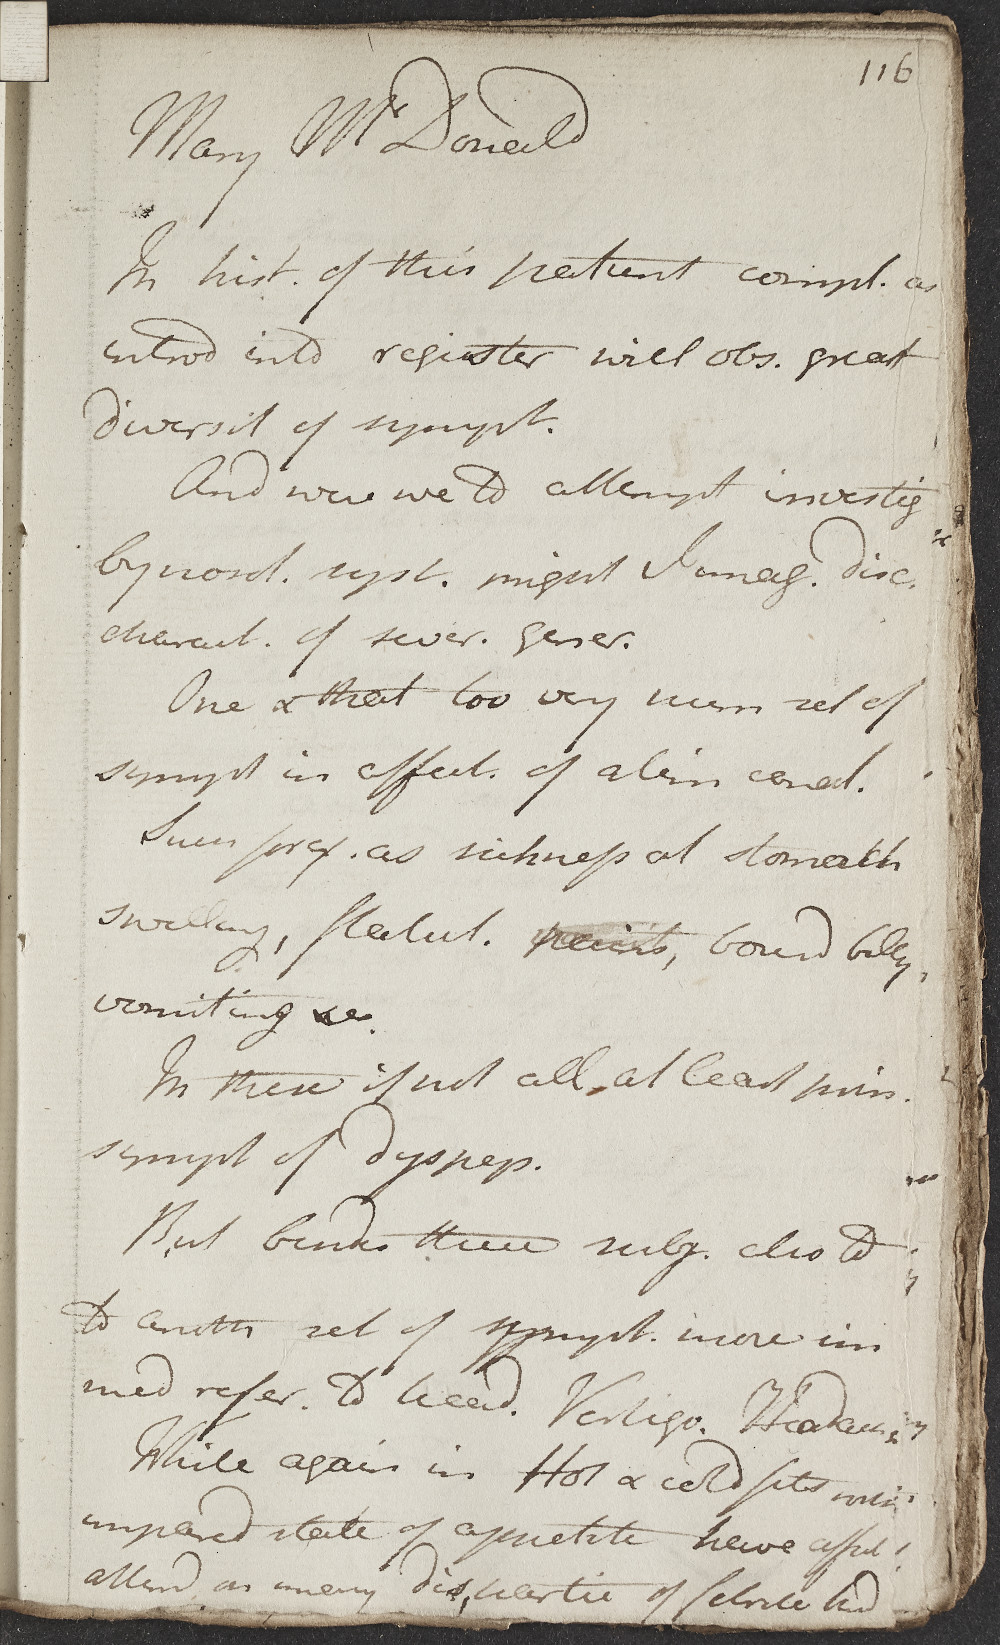 116
Mary McDonald
In hist. of this patient compl. as
introd into register will obs. great
diversit of sympt.
And were we to attempt investig
by nosol. syst. might I imag. disc.
charact. of sever. gener.
One & that too very num set of
sympt in affect. of alim canal.
Such prex. as sickness at stomach
swelling, flatul. pains, bound belly,
vomiting &c.
In these if not all, at least prin.
sympt of dyspep.
But besides these subj. also to
to anoth set of sympt. more im
med refer. to head. Vertigo. Headach
While again in Hot & cold fits with
impared state of appetite have
attend as many of febrile